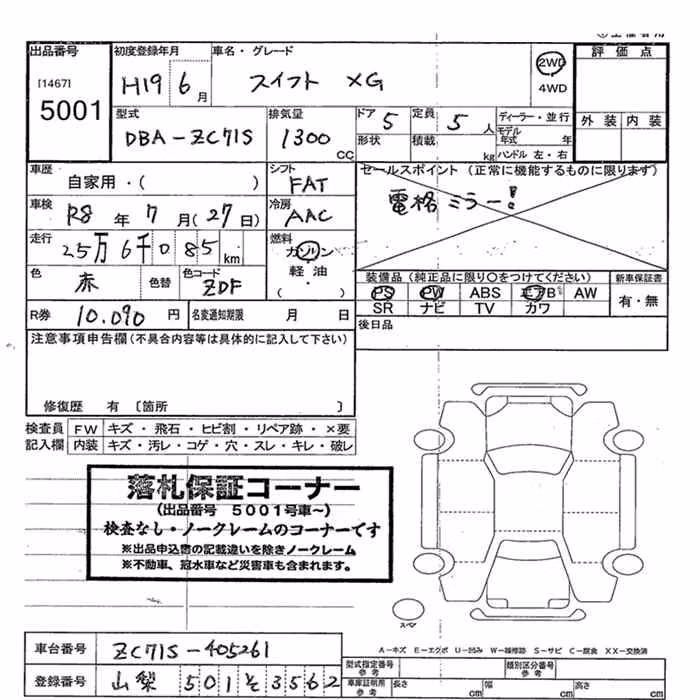 出品番号 初度登録年月 車名・グレード 評価点
[1467] H19 6月 スイフト XG 2WD
5001 4WD
型式 排気量 ドア 5 定員 5人 ディーラー・並行 外装 内装
DBA-ZC71S 1300CC 形状 積載 kg モデル年式 年
ハンドル 左・右
車歴 シフト セールスポイント (正常に機能するものに限ります)
自家用・( ) FAT 電格ミラー!
車検 冷房
R8年7月(27日) AAC
走行 燃料
25万6千085km ガソリン
軽油
・
色 色替 色コード 装備品 (純正品に限り○をつけてください) 新車保証書
赤 ZDF PS PW ABS エアB AW 有・無
SR ナビ TV カワ
R券 10.090円 名変通知期限 月 日 後日品
注意事項申告欄(不具合内容等は具体的に記入して下さい)
修復歴 有 〔箇所 〕
検査員 FW キズ・飛石・ヒビ割・リペア跡・×要
記入欄 内装 キズ・汚レ・コゲ・穴・スレ・キレ・破レ
落札保証コーナー
(出品番号 5001号車~)
検査なし・ノークレームのコーナーです
※出品申込書の記載違いを除きノークレーム
※不動車、冠水車など災害車も含まれます。
スペア
A-キズ E-エクボ U-凹み W-補修跡 S-サビ C-腐食 XX-交換済
車台番号 ZC71S-405261 型式指定番号 参考 類別区分番号 参考
登録番号 山梨 501そ3562 車庫証明用 参考 長さ 幅 高さ